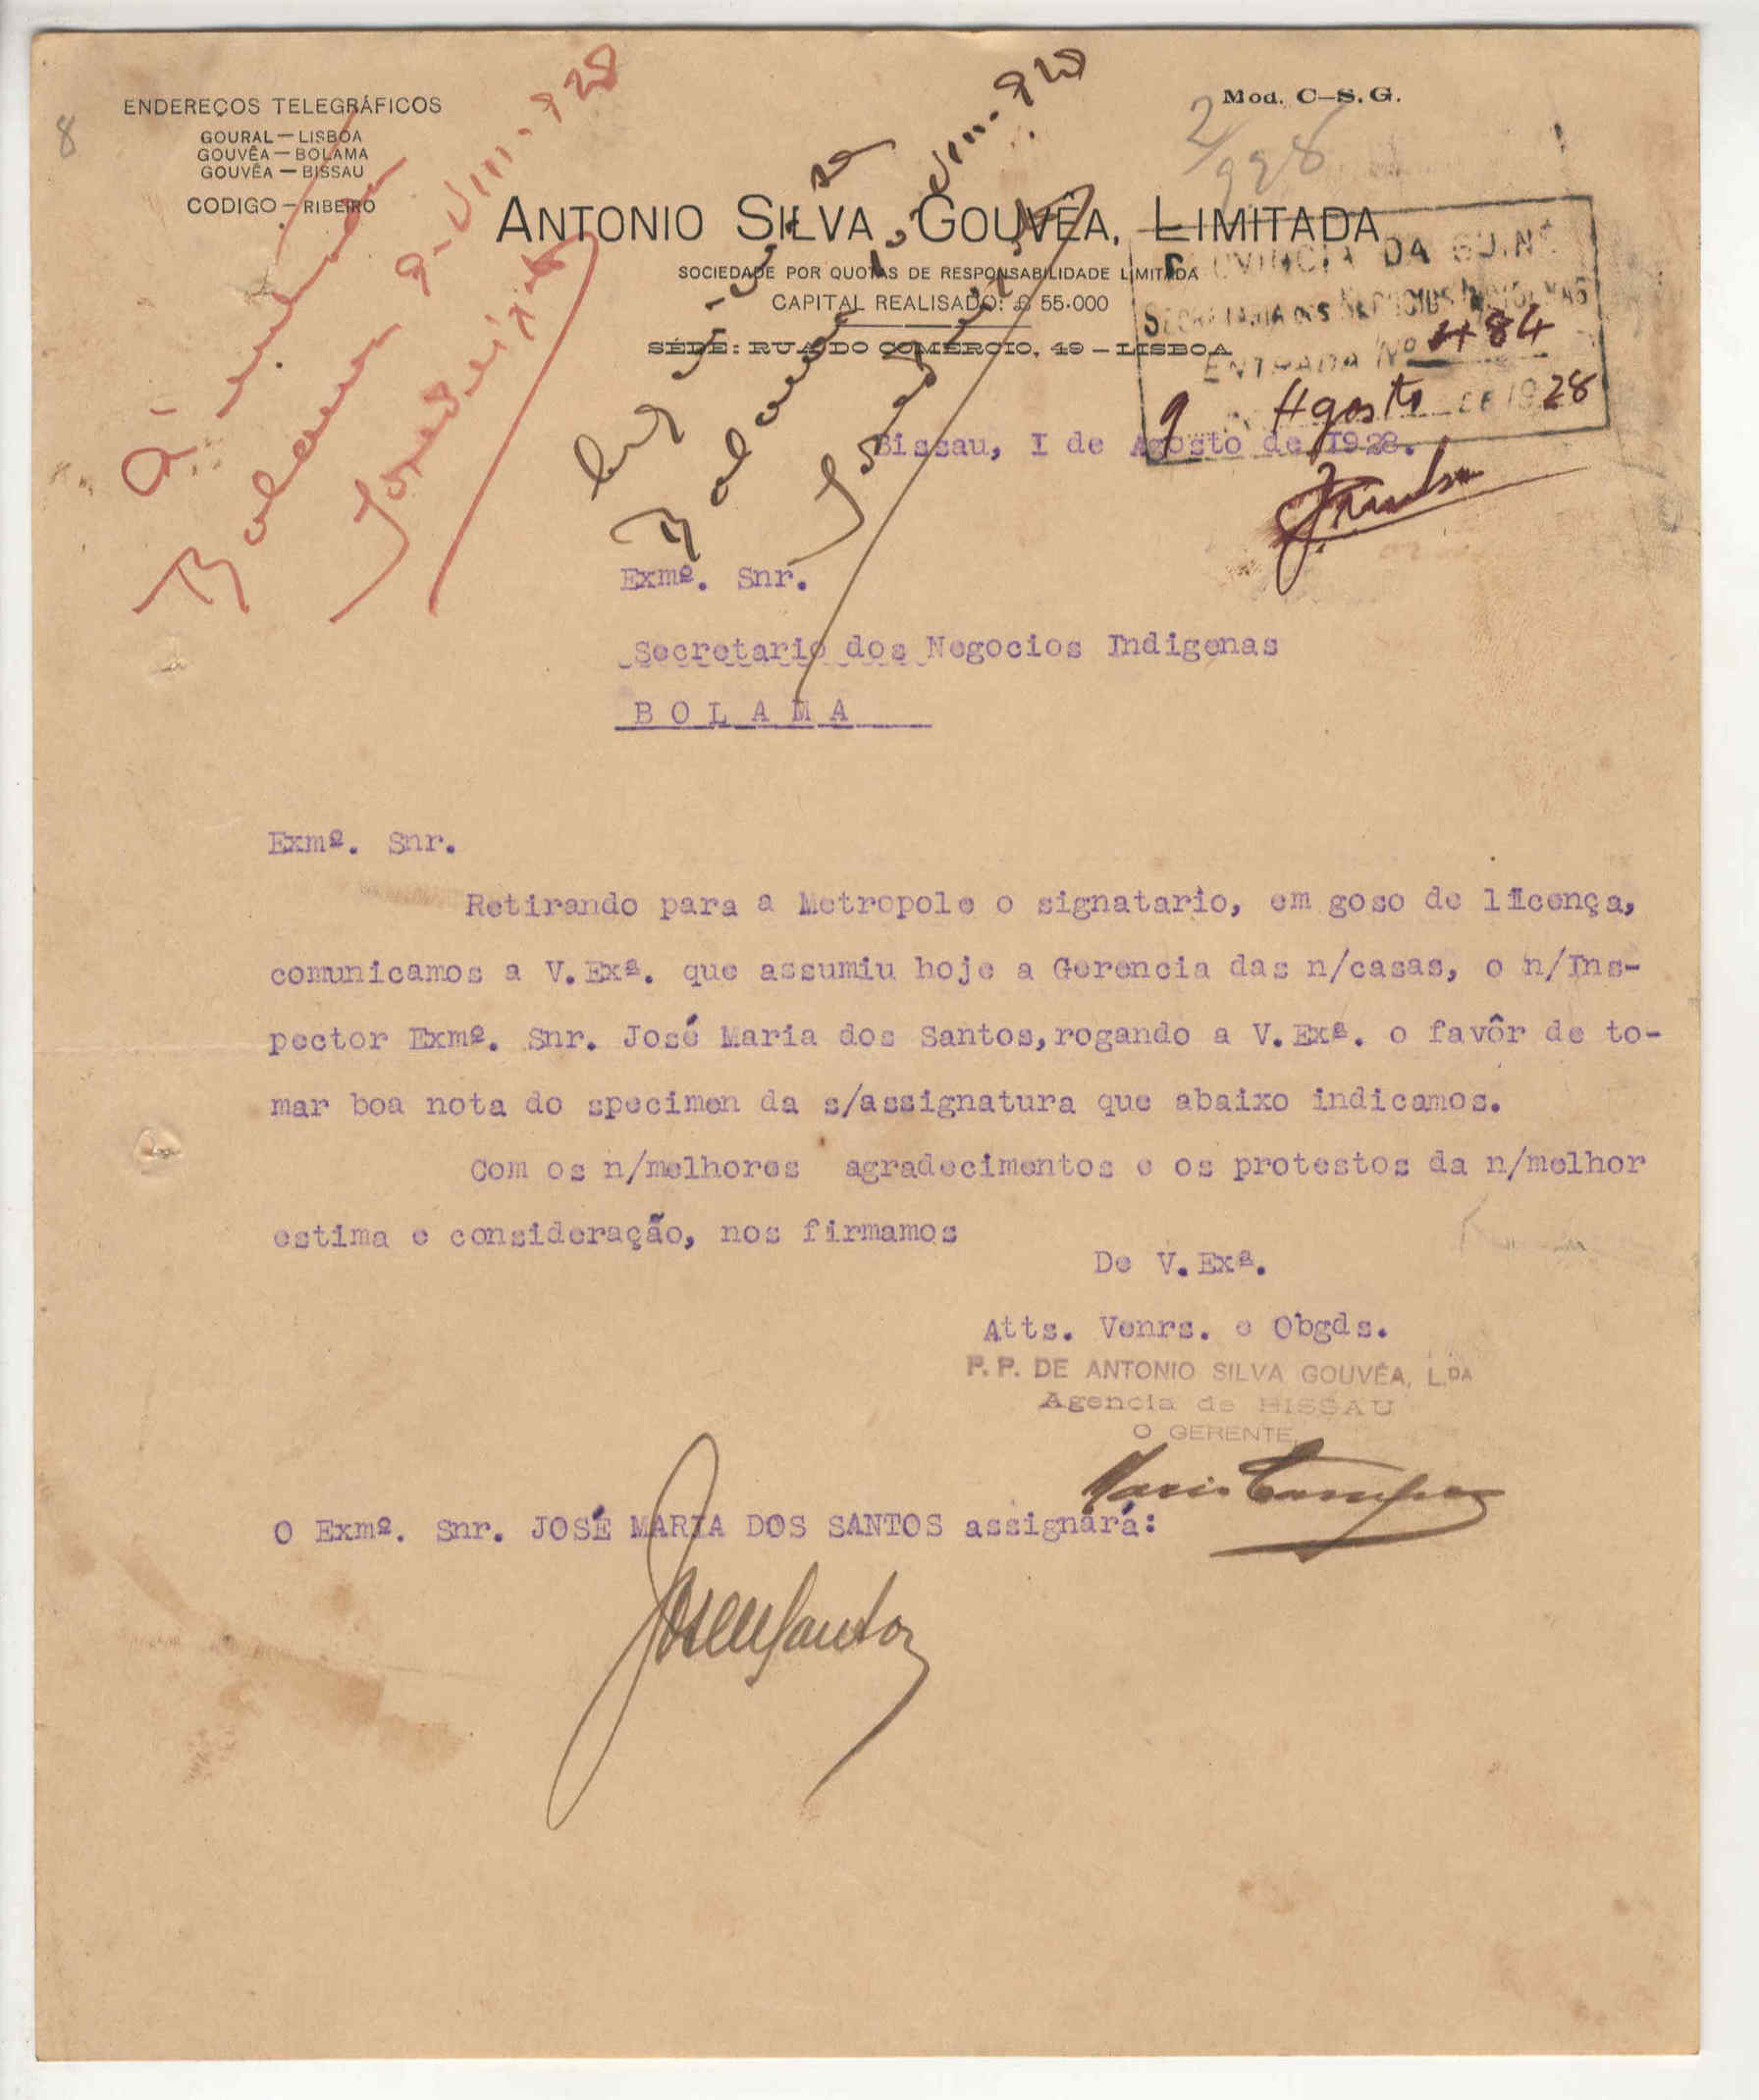 8
ENDEREÇOS TELEGRÁFICOS
GOURAL — LISBOA
GOUVÊA — BOLAMA
GOUVÊA — BISSAU
CODIGO — RIBEIRO
Mod. C–S. G.
2/928
ANTONIO SILVA GOUVÊA, LIMITADA
SOCIEDADE POR QUOTAS DE RESPONSABILIDADE LIMITADA
CAPITAL REALISADO: £ 55.000
SÉDE: RUA DO COMERCIO, 49 – LISBOA
PROVINCIA DA GUINÉ
SECRETARIA DOS NEGOCIOS INDIGENAS
ENTRADA Nº 484
9 Agosto DE 1928
Bolama 9-VIII-928
Bolama VIII-928
Bissau, I de Agosto de 1928.
Exmº. Snr.
Secretario dos Negocios Indigenas
BOLAMA
Exmº. Snr.
Retirando para a Metropole o signatario, em goso de licença,
comunicamos a V.Exª. que assumiu hoje a Gerencia das n/casas, o n/Ins-
pector Exmº. Snr. José Maria dos Santos,rogando a V.Exª. o favôr de to-
mar boa nota do specimen da s/assignatura que abaixo indicamos.
Com os n/melhores agradecimentos e os protestos da n/melhor
estima e consideração, nos firmamos
De V.Exª.
Atts. Venrs. e Obgds.
P. P. DE ANTONIO SILVA GOUVÊA, L.DA
Agencia de BISSAU
O GERENTE,
O Exmº. Snr. JOSÉ MARIA DOS SANTOS assignará:
JoseMSantos